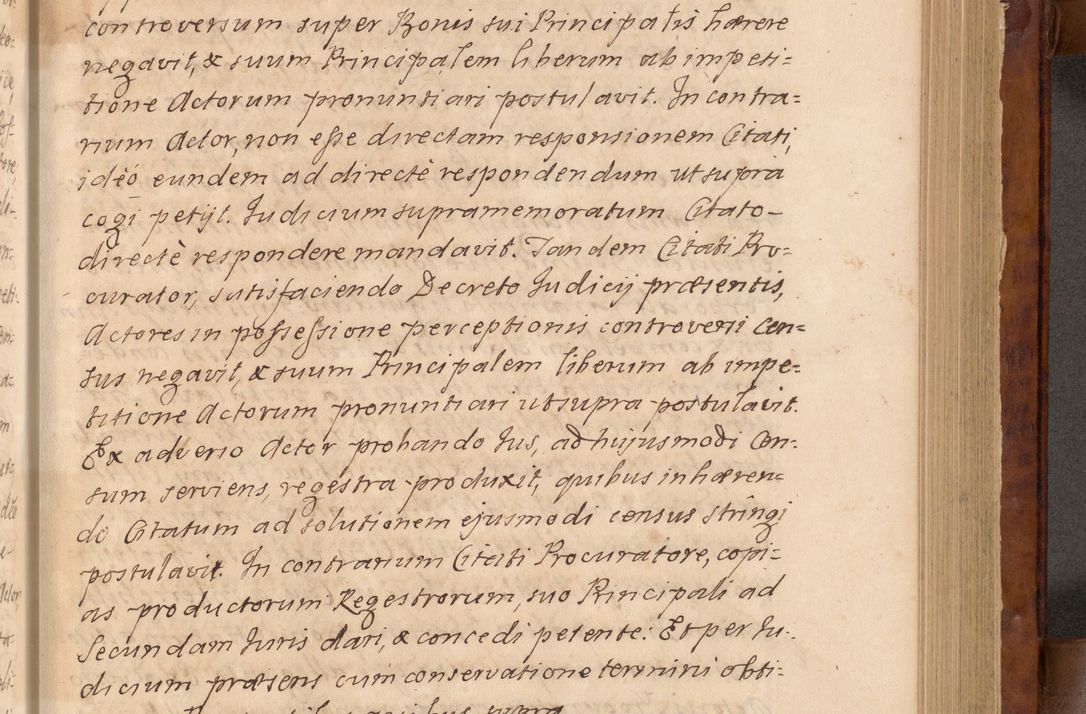 controversum super Bonis sui Principalis hærere
negavit, & suum Principalem liberum ab impeti=
tione Actorum pronuntiari postulavit. In contra=
rium Actor, non eße directam responsionem Citati,
ideò eundem ad directè respondendum ut supra
cogi petijt. Iudicium supramemoratum Citato
directè respondere mandavit. Tandem Citati Pro=
curator, satisfaciendo Decreto Iudicij præsentis,
Actores in poßeßione perceptionis controversi Cen=
sus negavit, & suum Principalem liberum ab impe=
titione Actorum pronuntiari ut supra postulavit.
Ex adverso Actor probando Ius, ad hujusmodi Cen=
sum serviens, regestra produxit, quibus inhæren=
do Citatum ad solutionem ejusmodi census stringi
postulavit. In contrarium Citati Procuratore, copi=
as productorum Regestrorum, suo Principali ad
Secundam Iuris dari, & concedi petente: Et per Iu=
dicium præsens cum conservatione termini obti=
supra